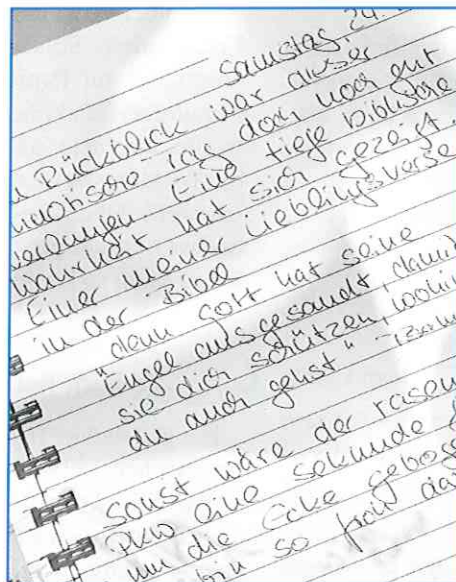 Samstag, 24.
Rückblick war dieser
Tag doch noch gut
verlaufen. Eine tiefe biblische
Wahrheit hat sich gezeigt.
Einer meiner Lieblingsverse
in der Bibel
"denn Gott hat seine
Engel ausgesandt, damit
sie dich schützen, wohin
du auch gehst" -
sonst wäre der rasen
PKW eine Sekunde
um die Ecke gebog
bin so froh da